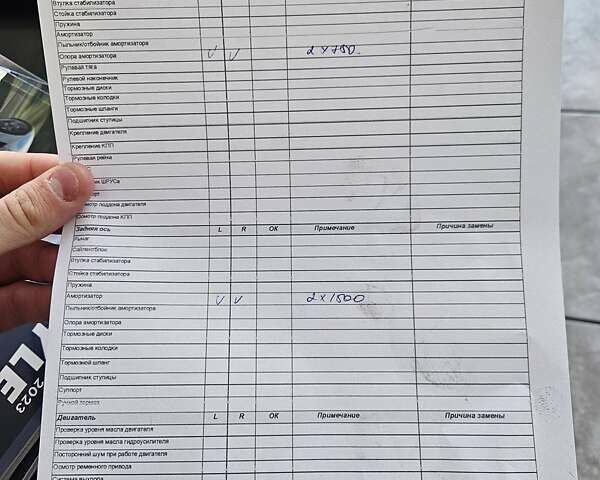 Втулка стабилизатора
Стойка стабилизатора
Пружина
Амортизатор
Пыльник/отбойник амортизатора
Опора амортизатора V V 2 x 750
Рулевая тяга
Рулевой наконечник
Тормозные диски
Тормозные колодки
Тормозные шланги
Подшипник ступицы
Крепление двигателя
Крепление КПП
Рулевая рейка
ШРУСа
Осмотр поддона двигателя
Осмотр поддона КПП
Задняя ось L R ОК Примечание Причина замены
Рычаг
Сайлентблок
Втулка стабилизатора
Стойка стабилизатора
Пружина
Амортизатор V V 2 x 1500
Пыльник/отбойник амортизатора
Опора амортизатора
Тормозные диски
Тормозные колодки
Тормозной шланг
Подшипник ступицы
Суппорт
Ручной тормоз
Двигатель L R ОК Примечание Причина замены
Проверка уровня масла двигателя
Проверка уровня масла гидроусилителя
Посторонний шум при работе двигателя
Осмотр ременного привода
Система выхлопа
2023